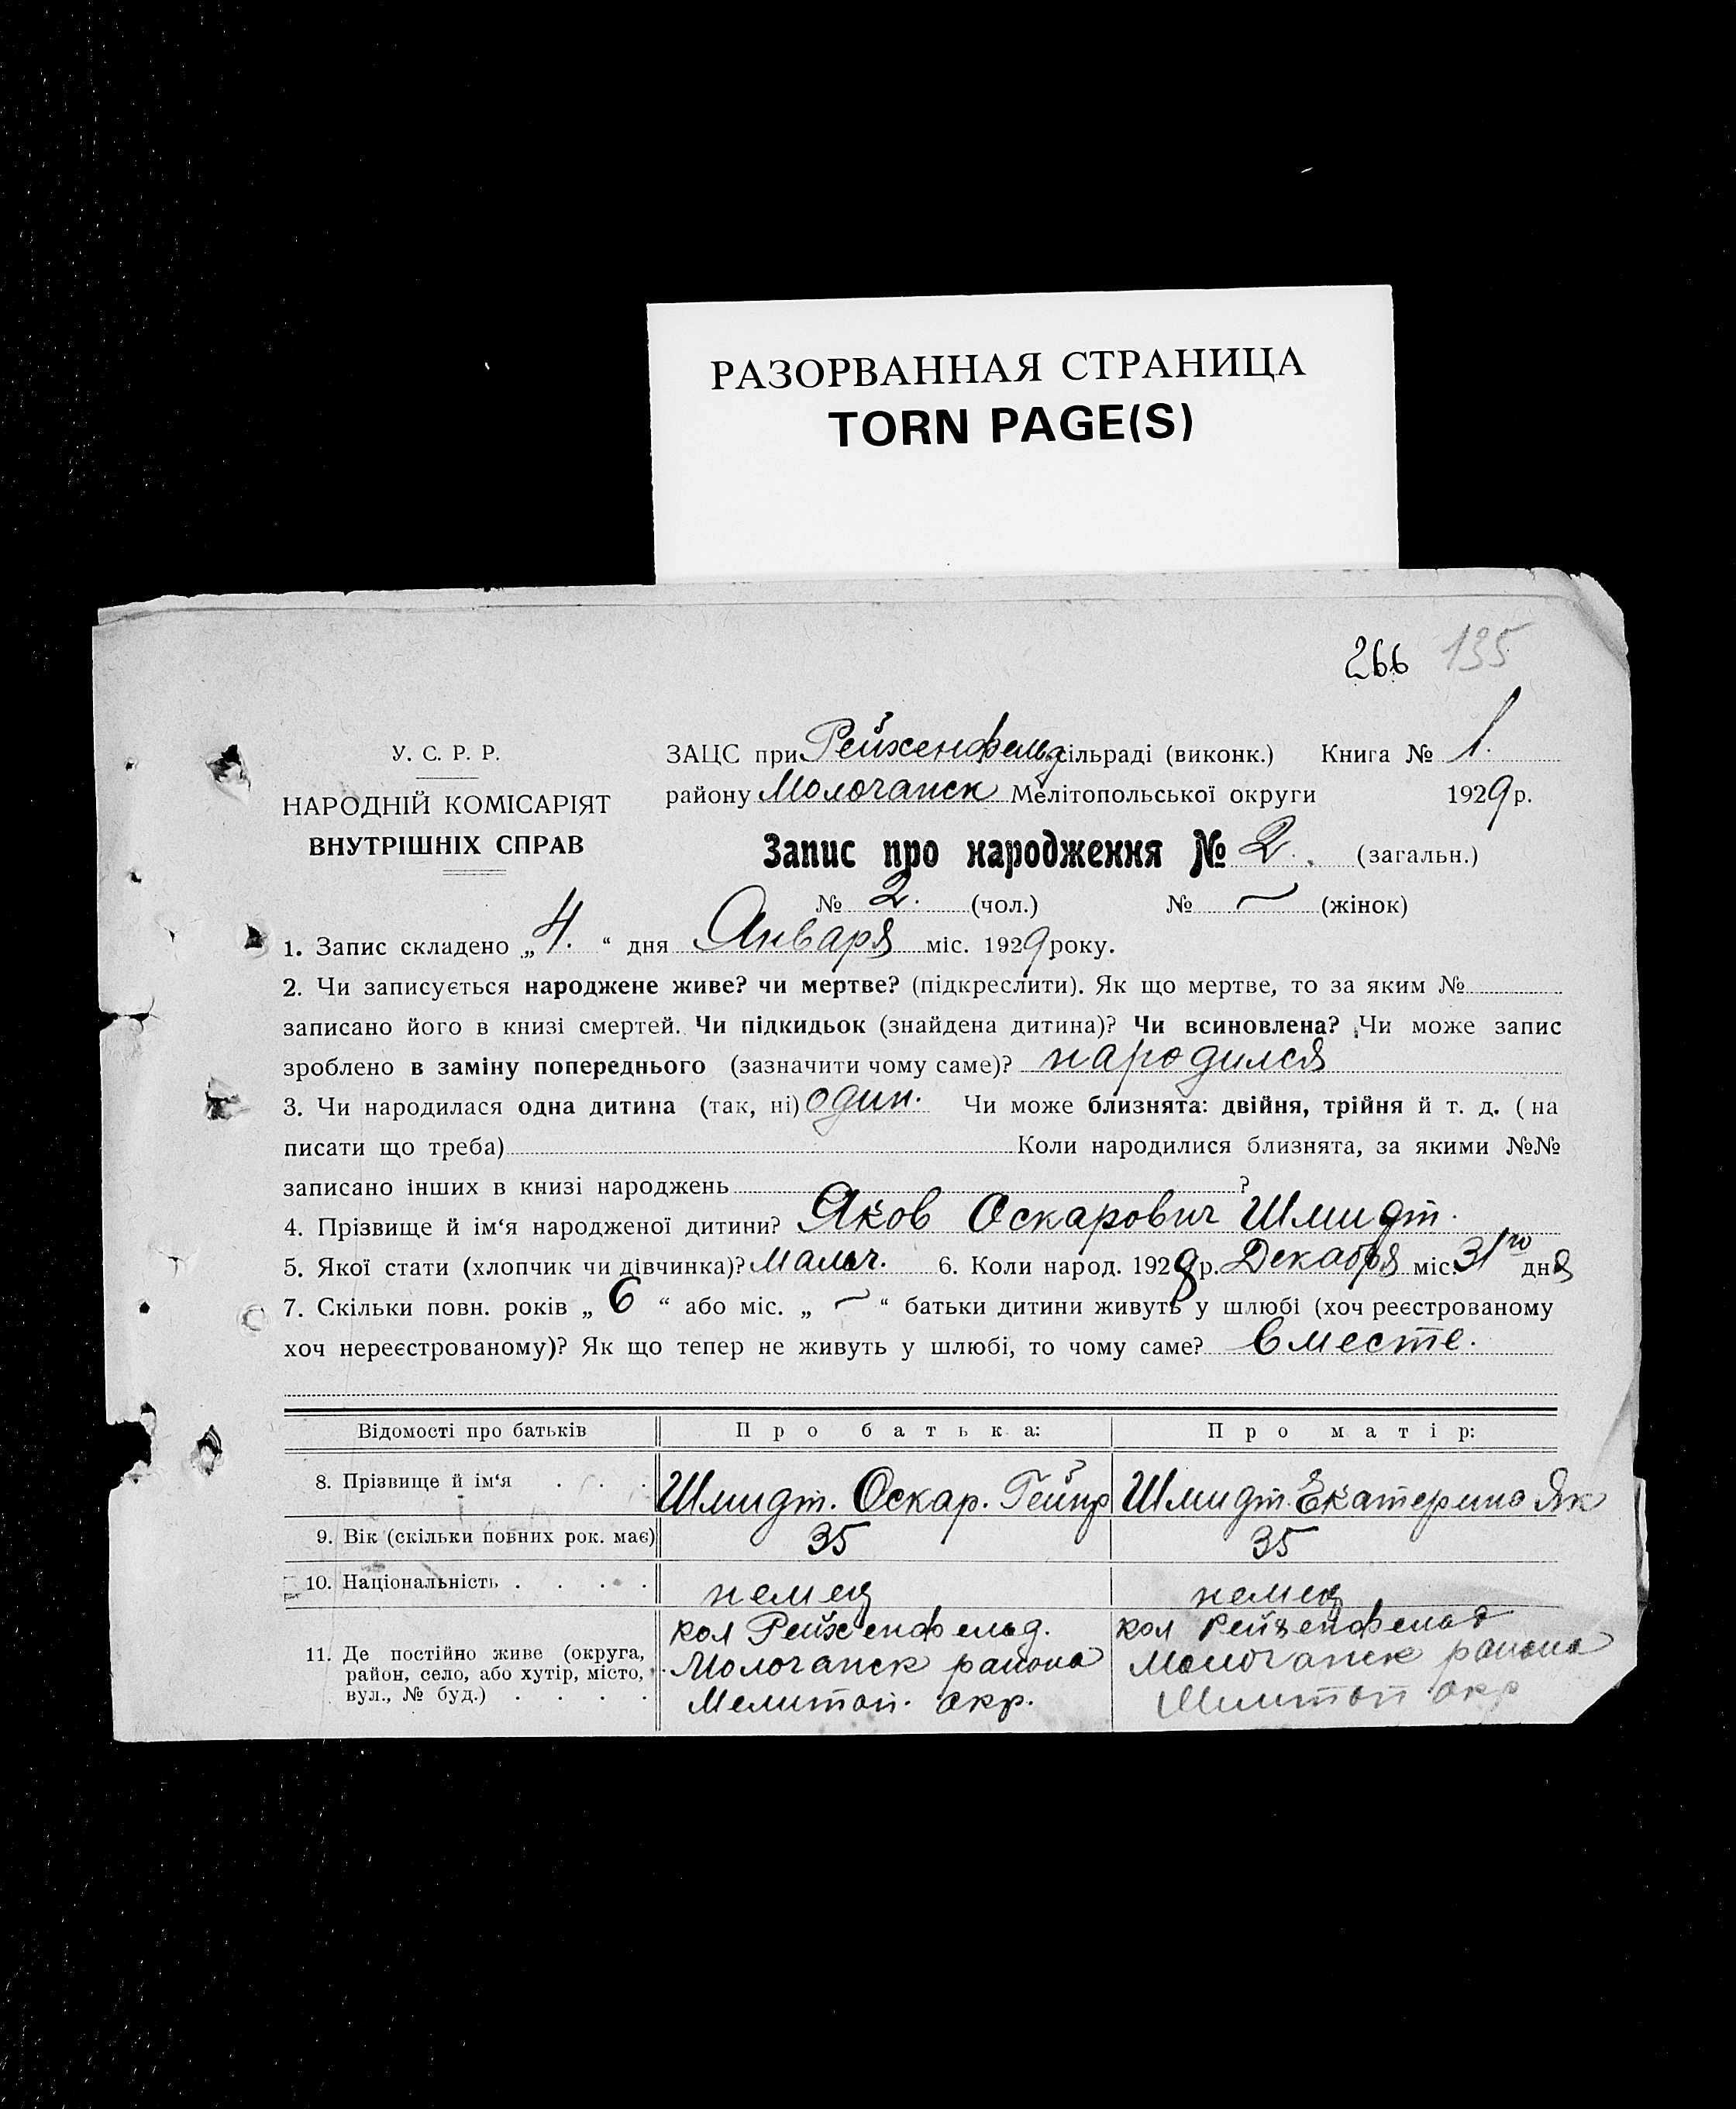 РАЗОРВАННАЯ СТРАНИЦА
TORN PAGE(S)
266 135
У. С. Р. Р.
НАРОДНІЙ КОМІСАРІЯТ
ВНУТРІШНІХ СПРАВ
ЗАЦС при Рейхенфельд сільраді (виконк.) Книга № 1.
району Молочанск Мелітопольської округи 1929 р.
Запис про народження № 2. (загальн.)
№ 2. (чол.) № — (жінок)
1. Запис складено „4.“ дня Января міс. 1929 року.
2. Чи записується народжене живе? чи мертве? (підкреслити). Як що мертве, то за яким №
записано його в книзі смертей. Чи підкидьок (знайдена дитина)? Чи всиновлена? Чи може запис
зроблено в заміну попереднього (зазначити чому саме)? народился
3. Чи народилася одна дитина (так, ні) один. Чи може близнята: двійня, трійня й т. д. (на
писати що треба) Коли народилися близнята, за якими №№
записано інших в книзі народжень ?
4. Прізвище й ім‘я народженої дитини? Яков Оскарович Шмидт.
5. Якої стати (хлопчик чи дівчинка)? Мальч. 6. Коли народ. 1928 р. Декабря міс. 31го дня
7. Скільки повн. років „6“ або міс. „—“ батьки дитини живуть у шлюбі (хоч реєстрованому
хоч нереєстрованому)? Як що тепер не живуть у шлюбі, то чому саме? вместе.
Відомості про батьків Про батька: Про матір:
8. Прізвище й ім‘я . . . Шмидт. Оскар. Гейнр Шмидт Екатерина Як
9. Вік (скільки повних рок. має) 35 35
10. Національність . . . . немец немец
11. Де постійно живе (округа, район, село, або хутір, місто, вул., № буд.) . . . .
кол Рейхенфельд. кол Рейхенфельд
Молочанск района Молочанск района
Мелитоп. окр. Мелитоп окр